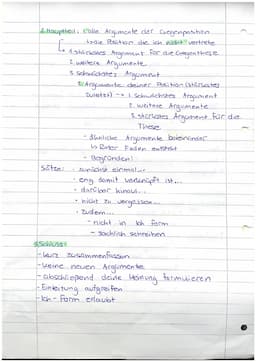 2. Hauptteil: 1. alle Argumente der Gegenposition
↳ die Position die ich nicht vertrete
1. stärkstes Argument für die Gegenthese
2. weitere Argumente
3. schwächstes Argument
2. Argumente deiner Position (stärkstes
zuletzt) → 1. schwächstes Argument
2. weitere Argumente
3. stärkstes Argument für die
These
- ähnliche Argumente beieinander
↳ Roter Faden entsteht
- Begründen!
Sätze: - zunächst einmal...
- eng damit verknüpft ist...
- darüber hinaus...
- nicht zu vergessen...
- zudem...
- nicht in Ich form
- sachlich schreiben
3. Schluss:
- kurz zusammenfassen
- keine neuen Argumente
- abschließend deine Meinung formulieren
- Einleitung aufgreifen
- Ich-Form erlaubt